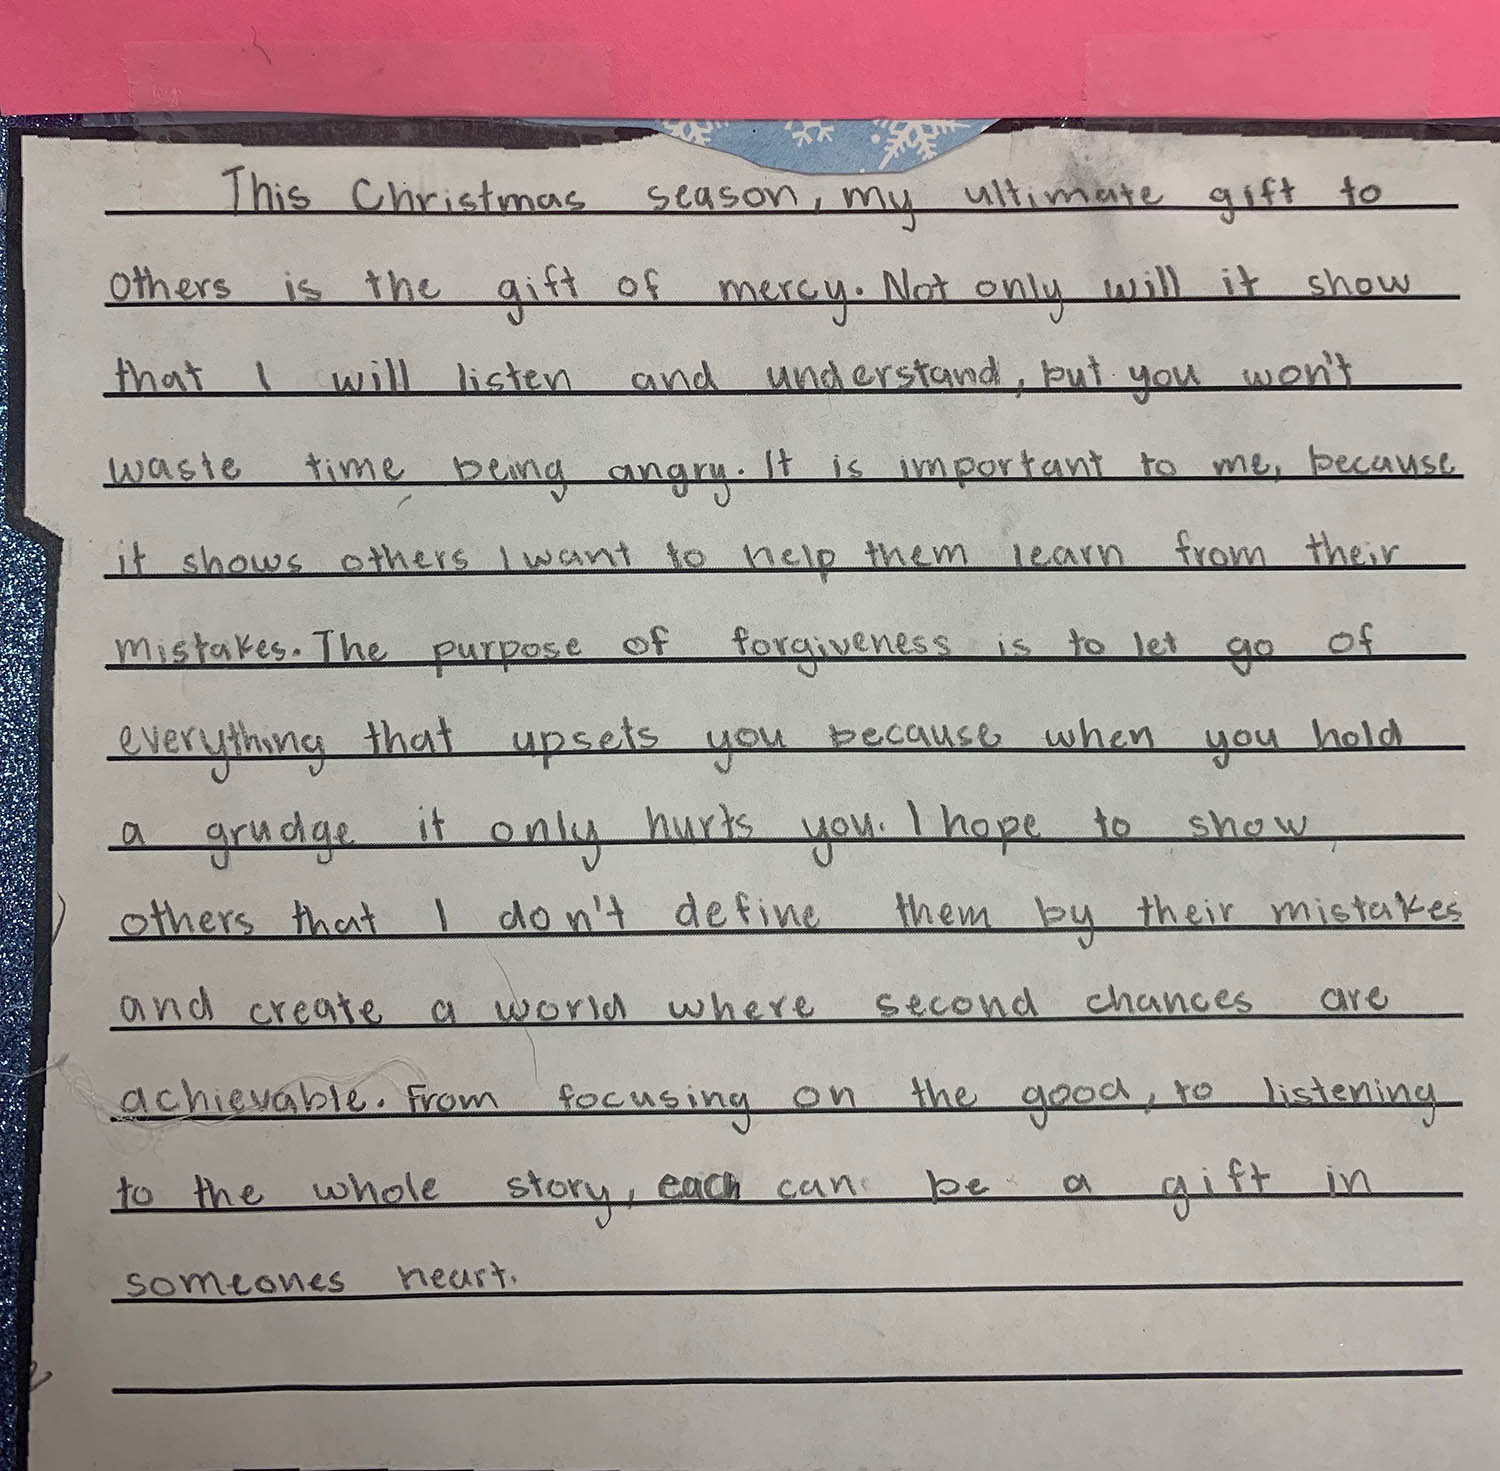 This Christmas season, my ultimate gift to
others is the gift of mercy. Not only will it show
that I will listen and understand, but you won't
waste time being angry. It is important to me, because
it shows others I want to help them learn from their
mistakes. The purpose of forgiveness is to let go of
everything that upsets you because when you hold
a grudge it only hurts you. I hope to show
others that I don't define them by their mistakes
and create a world where second chances are
achievable. From focusing on the good, to listening
to the whole story, each can be a gift in
someones heart.